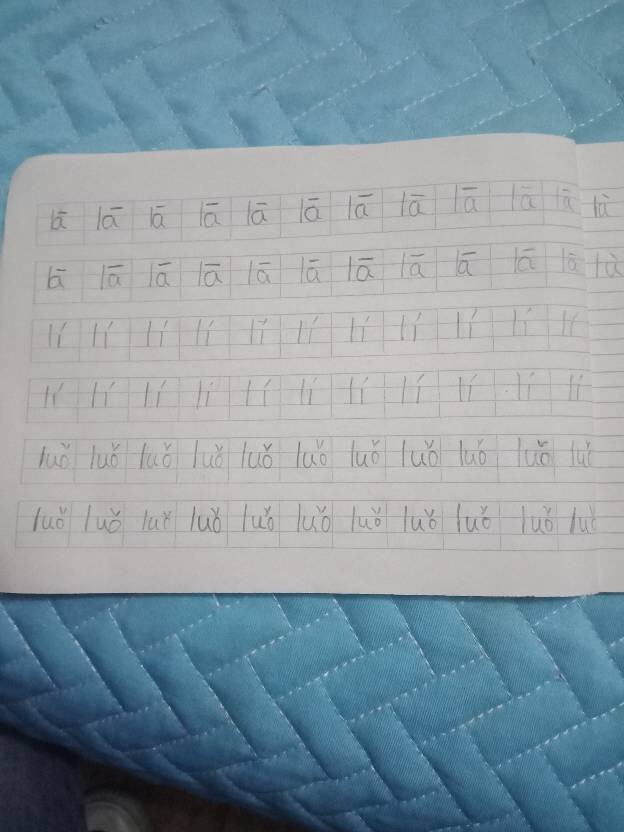 lā lā lā lā lā lā lā lā lā lā lā là
lā lā lā lā lā lā lā lā lā lā lā là
lí lí lí lí lí lí lí lí lí lí lí
lí lí lí lí lí lí lí lí lí lí lí
luǒ luǒ luǒ luǒ luǒ luǒ luǒ luǒ luǒ luǒ luǒ
luǒ luǒ luǒ luǒ luǒ luǒ luǒ luǒ luǒ luǒ luǒ